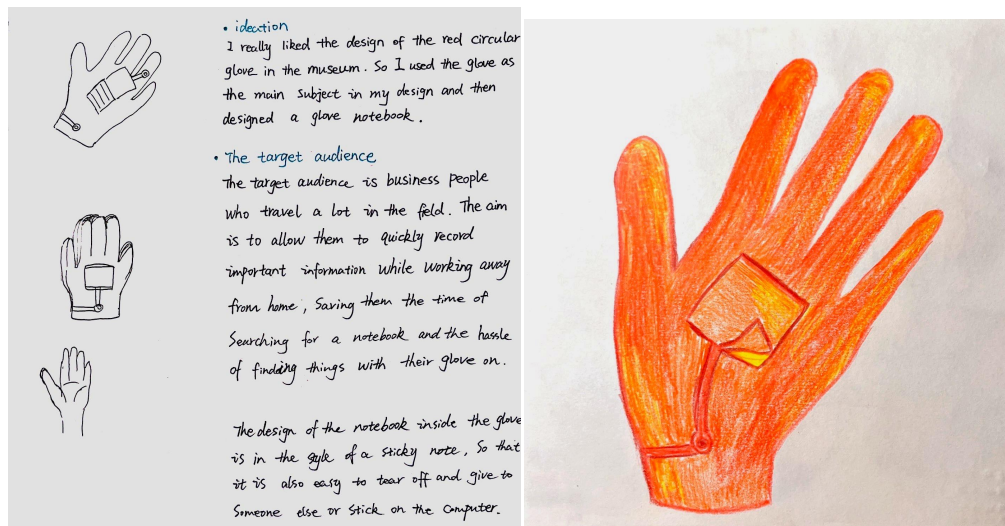 • ideation
I really liked the design of the red circular
glove in the museum. So I used the glove as
the main subject in my design and then
designed a glove notebook.
• The target audience
The target audience is business people
who travel a lot in the field. The aim
is to allow them to quickly record
important information while working away
from home, Saving them the time of
Searching for a notebook and the hassle
of finding things with their glove on.
The design of the notebook inside the glove
is in the style of a sticky note, So that
it is also easy to tear off and give to
Someone else or stick on the computer.